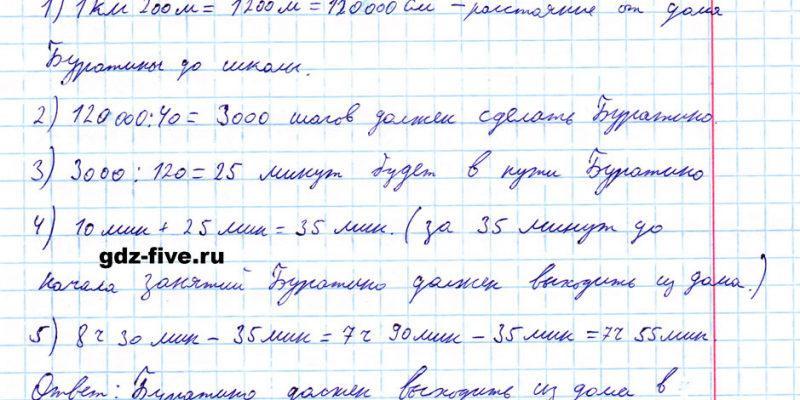 1) 1 км 200 м = 1200 м = 120000 см – расстояние от дома
Буратины до школы.
2) 120000:40 = 3000 шагов должен сделать Буратино.
3) 3000 : 120 = 25 минут будет в пути Буратино
4) 10 мин + 25 мин = 35 мин. (за 35 минут до
gdz-five.ru
начала занятий Буратино должен выходить из дома.)
5) 8 ч 30 мин – 35 мин = 7 ч 90 мин – 35 мин = 7 ч 55 мин.
Ответ: Буратино должен выходить из дома в